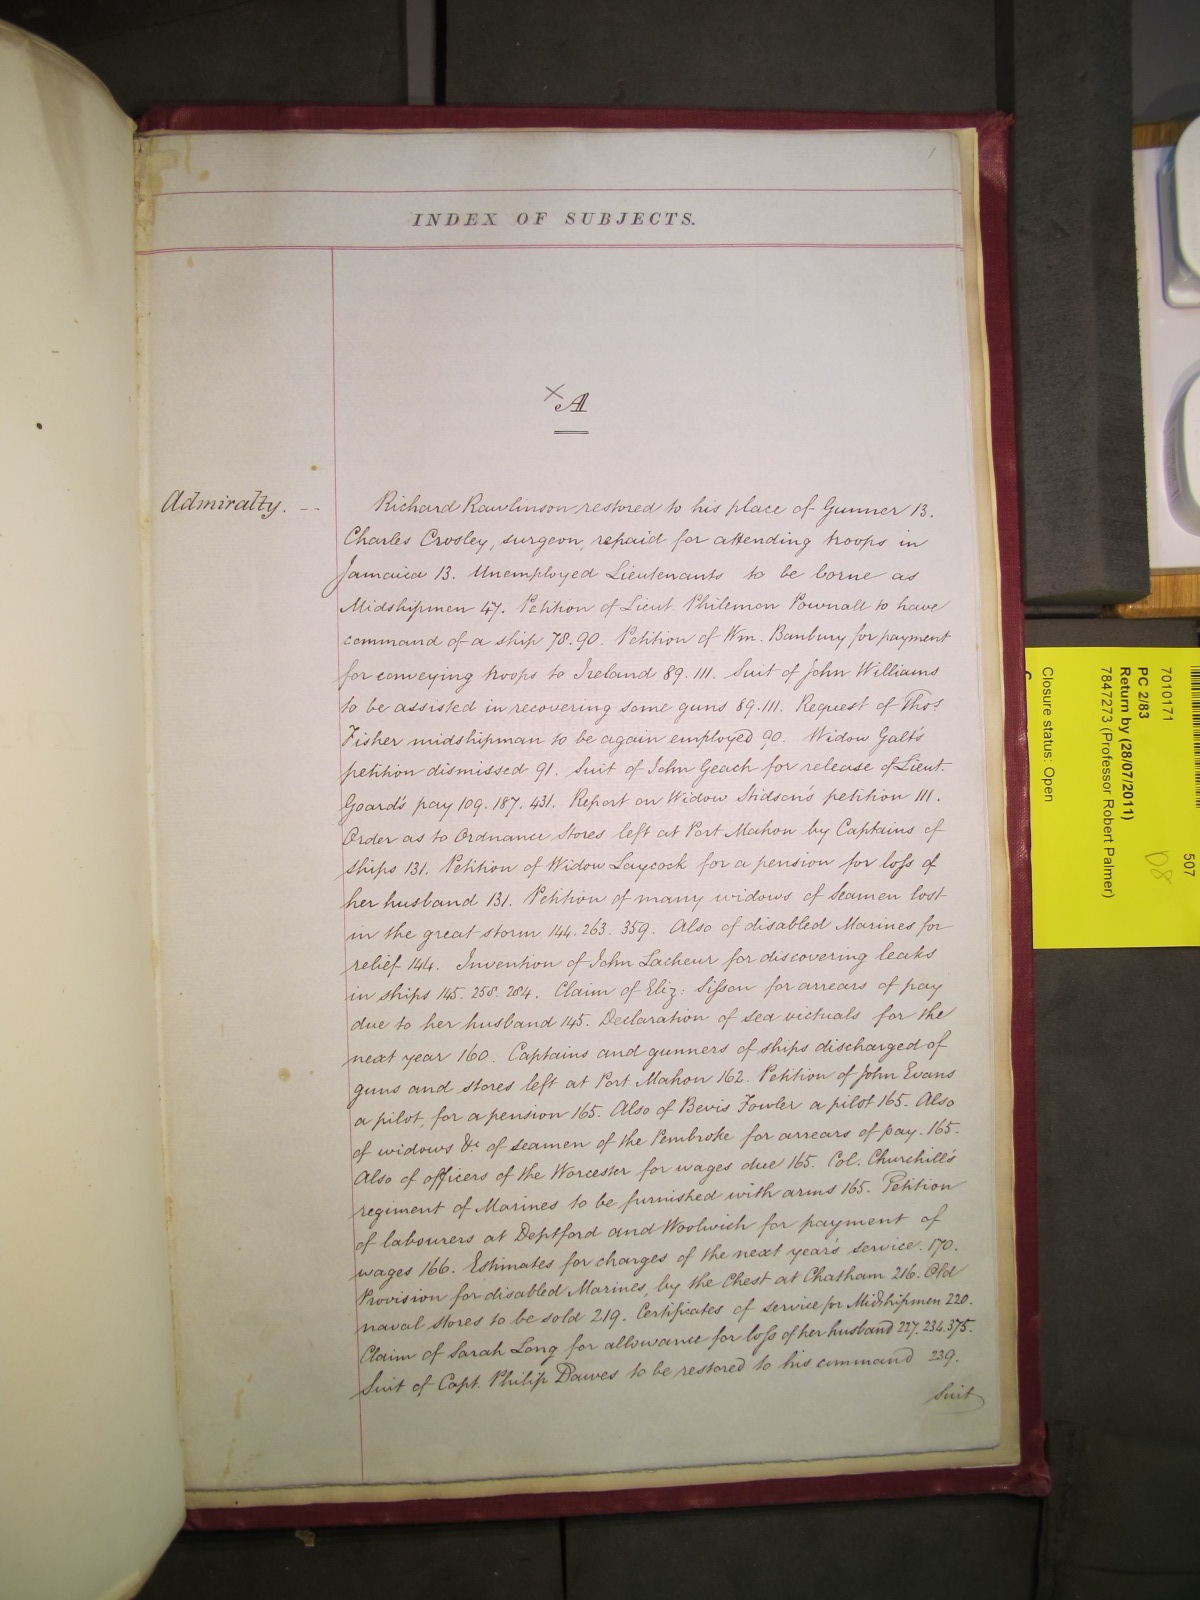 1
INDEX OF SUBJECTS.
×A
Admiralty. --
Richard Rawlinson restored to his place of Gunner 13.
Charles Crosley, surgeon, repaid for attending troops in
Jamaica 13. Unemployed Lieutenants to be borne as
Midshipmen 47. Petition of Lieut. Philemon Pownall to have
command of a ship 78.90. Petition of Wm. Banbury for payment
for conveying troops to Ireland 89.111. Suit of John Williams
to be assisted in recovering some guns 89.111. Request of Thos.
Fisher midshipman to be again employed 90. Widow Galt's
petition dismissed 91. Suit of John Geach for release of Lieut.
Goard's pay 109.187.431. Report on Widow Stidson's petition 111.
Order as to Ordnance stores left at Port Mahon by Captains of
ships 131. Petition of Widow Laycock for a pension for loss of
her husband 131. Petition of many widows of seamen lost
in the great storm 144.263.359. Also of disabled Marines for
relief 144. Invention of John Lacheur for discovering leaks
in ships 145.258.284. Claim of Eliz: Sisson for arrears of pay
due to her husband 145. Declaration of sea victuals for the
next year 160. Captains and gunners of ships discharged of
guns and stores left at Port Mahon 162. Petition of John Evans
a pilot, for a pension 165. Also of Bevis Fowler a pilot 165. Also
of widows &c. of seamen of the Pembroke for arrears of pay. 165.
Also of officers of the Worcester for wages due 165. Col. Churchill's
regiment of Marines to be furnished with arms 165. Petition
of labourers at Deptford and Woolwich for payment of
wages 166. Estimates for charges of the next year's service. 170.
Provision for disabled Marines, by the Chest at Chatham 216. Old
naval stores to be sold 219. Certificates of service for Midshipmen 220.
Claim of Sarah Long for allowance for loss of her husband 227.234.375.
Suit of Capt. Philip Dawes to be restored to his command 239.
Suit
7010171
507
PC 2/83
Return by (28/07/2011)
7847273 (Professor Robert Palmer)
D8
Closure status: Open